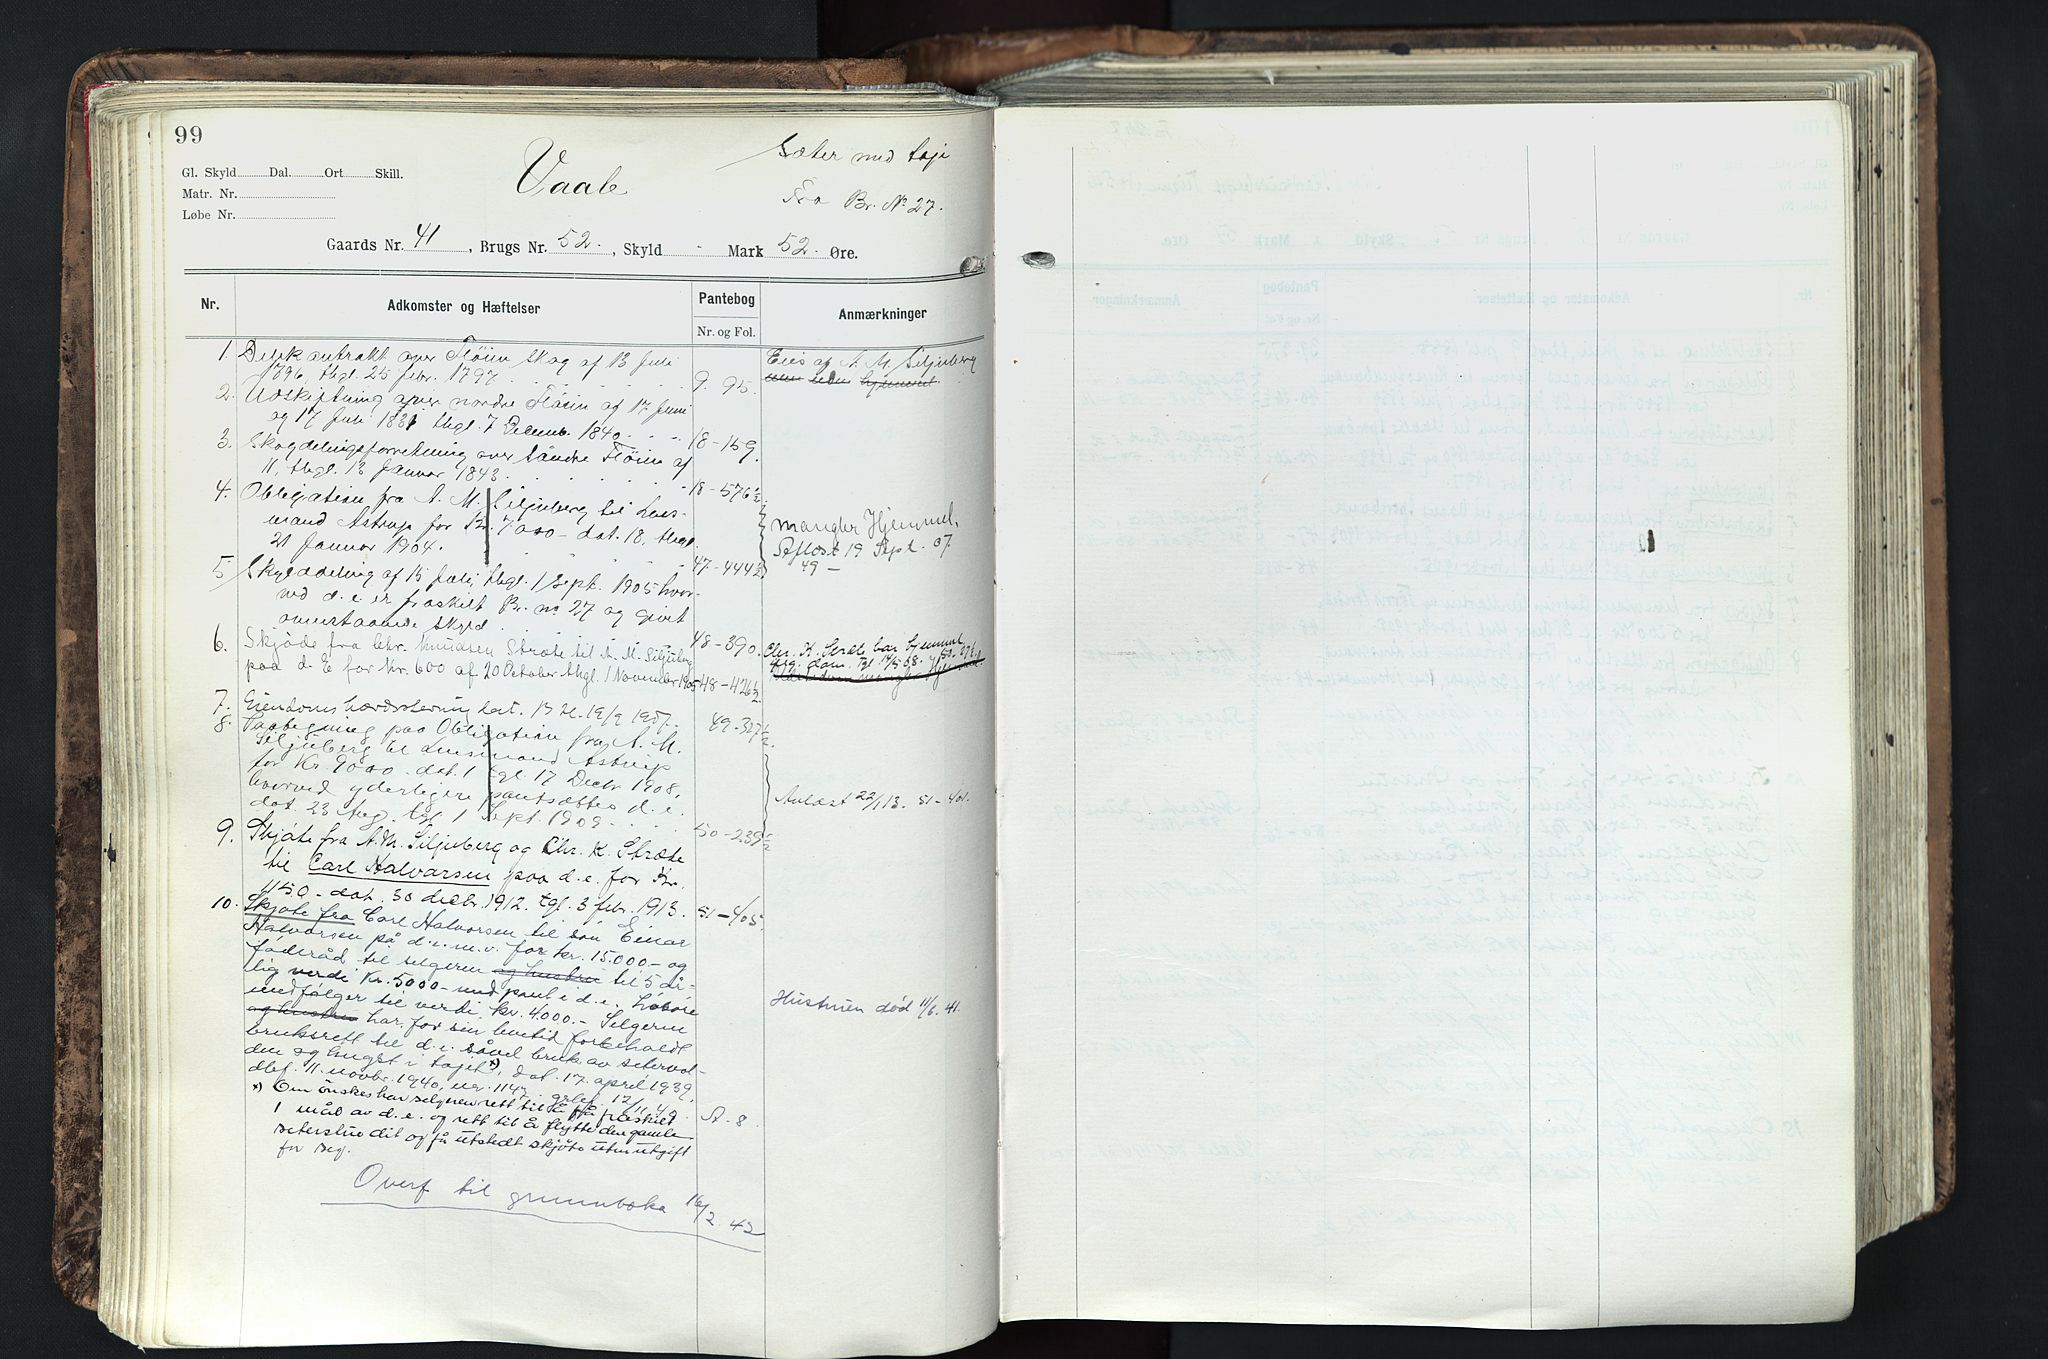 99
Gl. Skyld Dal. Ort Skill.
Matr. Nr.
Løbe Nr.
Vaale
Sæter med tøje
Fra Br. No 27.
Gaards Nr. 41, Brugs Nr. 52., Skyld - Mark 52. Øre.
Nr.
Adkomster og Hæftelser
Pantebog
Nr. og Fol.
Anmærkninger
1. Delekontrakt over Fløien Skog af 13 Juli
1796, thgl. 25 febr. 1797. 9. 95.
Eies af A. M. Siljuberg
men uden hjemmel.
2. Udskiftning over nordre Fløien af 17. Juni
og 17 Juli 1831 thgl. 7 Decemb. 1840. 18-159.
3. Skogdelingsforretning over søndre Fløien af
11, thgl. 13 Januar 1843. 18-576½
4. Obligation fra A. M. Siljuberg til Lens-
mand Astrup for Kr. 7000 - dat. 18, thgl.
21 Januar 1904. 47-444½
mangler Hjemmel.
Aflæst 19 Sept. 07.
49 -
5. Skylddeling af 15 Juli, thgl. 1 Sept. 1905 hvor-
ved d. e. er fraskilt Br. no 27 og givet
ovenstaaende skyld. 48-390.
6. Skjøde fra Chr. Knudsen Stræte til A. M. Siljuberg
paa d. E for Kr. 600 af 20 October thgl. 1 November 1905 48-426½
Chr. K. Stræte har hjemmel
7. Eiendoms dat. 13 tl. 19/9 1907. 49-327½
8. Paategning paa Obligation fra A. M.
Siljuberg til Lensmand Astrup
for Kr. 9000 - dat. 1 tgl. 17 Decbr 1908,
hvorved yderligere pantsættes d. e.
dat. 23 Aug. tgl. 1 Sept. 1909 50-239½
Avlæst 22/1 13. 51-401.
9. Skjøte fra A.M. Siljuberg og Chr. K. Stræte
til Carl Halvorsen paa d. e. for Kr.
1150 - dat. 30 decbr. 1912. tgl. 3 febr. 1913. 51-405.
10. Skjøte fra Carl Halvorsen til sön Einar
Halvorsen på d. e. m. v. for kr. 15.000.- og
föderåd til selgeren og hustru til 5 år-
lig verdi kr. 5000.- med pant i d. e. Lösöre
medfölger til verdi kr. 4.000.- Selgeren
og hustru har for sin levetid forbeholdt
bruksrett til d. e. såvel bruk av setervol-
den og hugst i tøjet x), dat. 17. april 1939,
dbf. 11. novbr. 1940, nr. 1147. 12/11 40. A - 8.
Hustruen död 11/6. 41.
x) Om önskes har selgeren rett til å få fraskilt
1 mål av d. e. og rett til å flytte den gamle
seterstue dit og få utstedt skjöte uten utgift
for seg.
Overf til grunnboka 16/2. 42